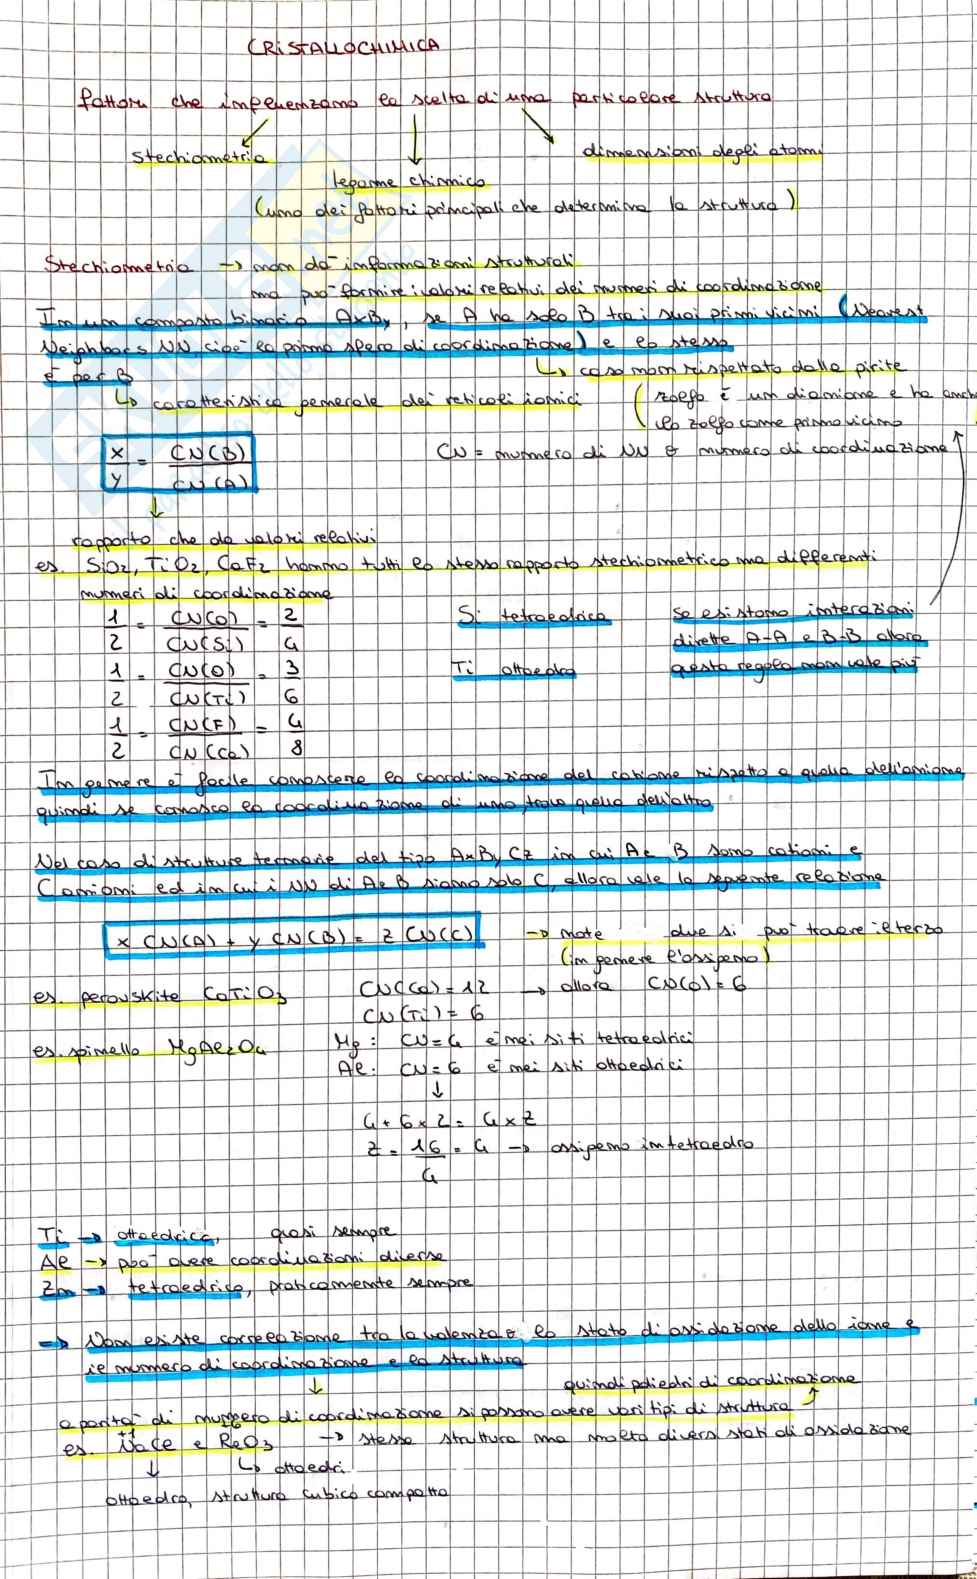 CRISTALLOCHIMICA
fattori che influenzano la scelta di una particolare struttura
stechiometria
dimensioni degli atomi
legame chimico
(uno dei fattori principali che determina la struttura)
Stechiometria → non dà informazioni strutturali
ma può fornire i valori relativi dei numeri di coordinazione
In un composto binario AxBy, se A ha solo B tra i suoi primi vicini (Nearest
Neighbors NN, cioè la prima sfera di coordinazione) e lo stesso
è per B
↳ caso non rispettato dalla pirite
↳ caratteristica generale dei reticoli ionici
(zolfo è un dianione e ha anche
lo zolfo come primo vicino
x/y = CN(B)/CN(A)
CN = numero di NN o numero di coordinazione
↓
rapporto che da valori relativi
es. SiO2, TiO2, CaF2 hanno tutti lo stesso rapporto stechiometrico ma differenti
numeri di coordinazione
1/2 = CN(O)/CN(Si) = 2/4
Si tetraedrico
1/2 = CN(O)/CN(Ti) = 3/6
Ti ottaedro
1/2 = CN(F)/CN(Ca) = 4/8
Se esistono interazioni
dirette A-A e B-B allora
questa regola non vale più
In genere è facile conoscere la coordinazione del catione rispetto a quella dell'anione,
quindi se conosco la coordinazione di uno, trovo quella dell'altro
Nel caso di strutture ternarie del tipo AxByCz in cui A e B sono cationi e
C anioni ed in cui i NN di A e B siano solo C, allora vale la seguente relazione
x CN(A) + y CN(B) = z CN(C)
→ note due si può trovare il terzo
(in genere l'ossigeno)
es. perovskite CaTiO3
CN(Ca) = 12 → allora CN(O) = 6
CN(Ti) = 6
es. spinello MgAl2O4
Mg: CN = 4 è nei siti tetraedrici
Al: CN = 6 è nei siti ottaedrici
↓
4 + 6 x 2 = 4 x z
z = 16/4 = 4 → ossigeno in tetraedro
Ti → ottaedrica, quasi sempre
Al → può avere coordinazioni diverse
Zn → tetraedrico, praticamente sempre
→ Non esiste correlazione tra la valenza o lo stato di ossidazione dello ione e
il numero di coordinazione e la struttura
↓
quindi poliedri di coordinazione
a parità di numero di coordinazione si possono avere vari tipi di struttura
es. NaCl e ReO3 → stessa struttura ma molto diversi stati di ossidazione
+1 +6
↓ ↳ ottaedri
ottaedro, struttura cubico compatta